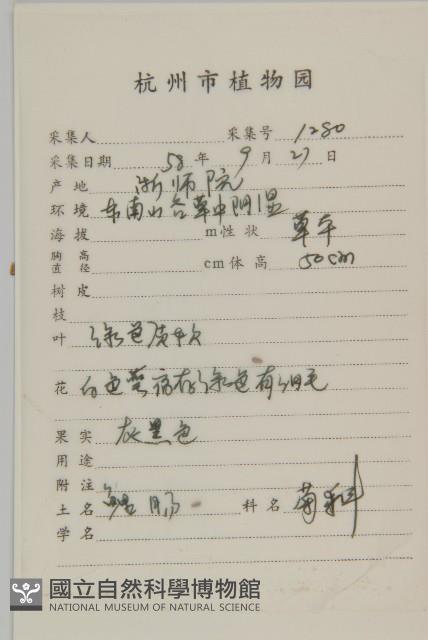 杭州市植物园
采集人 采集号 1280
采集日期 58 年 9 月 27 日
产地 浙师院
环境 东南山谷草中阴湿
海拔 m 性状 草本
胸高直径 cm 体高 50cm
树皮
枝
叶 绿色
花 白色 绿色有细毛
果实 灰黑色
用途
附注
土名 鳢肠 科名 菊科
学名
國立自然科學博物館
NATIONAL MUSEUM OF NATURAL SCIENCE